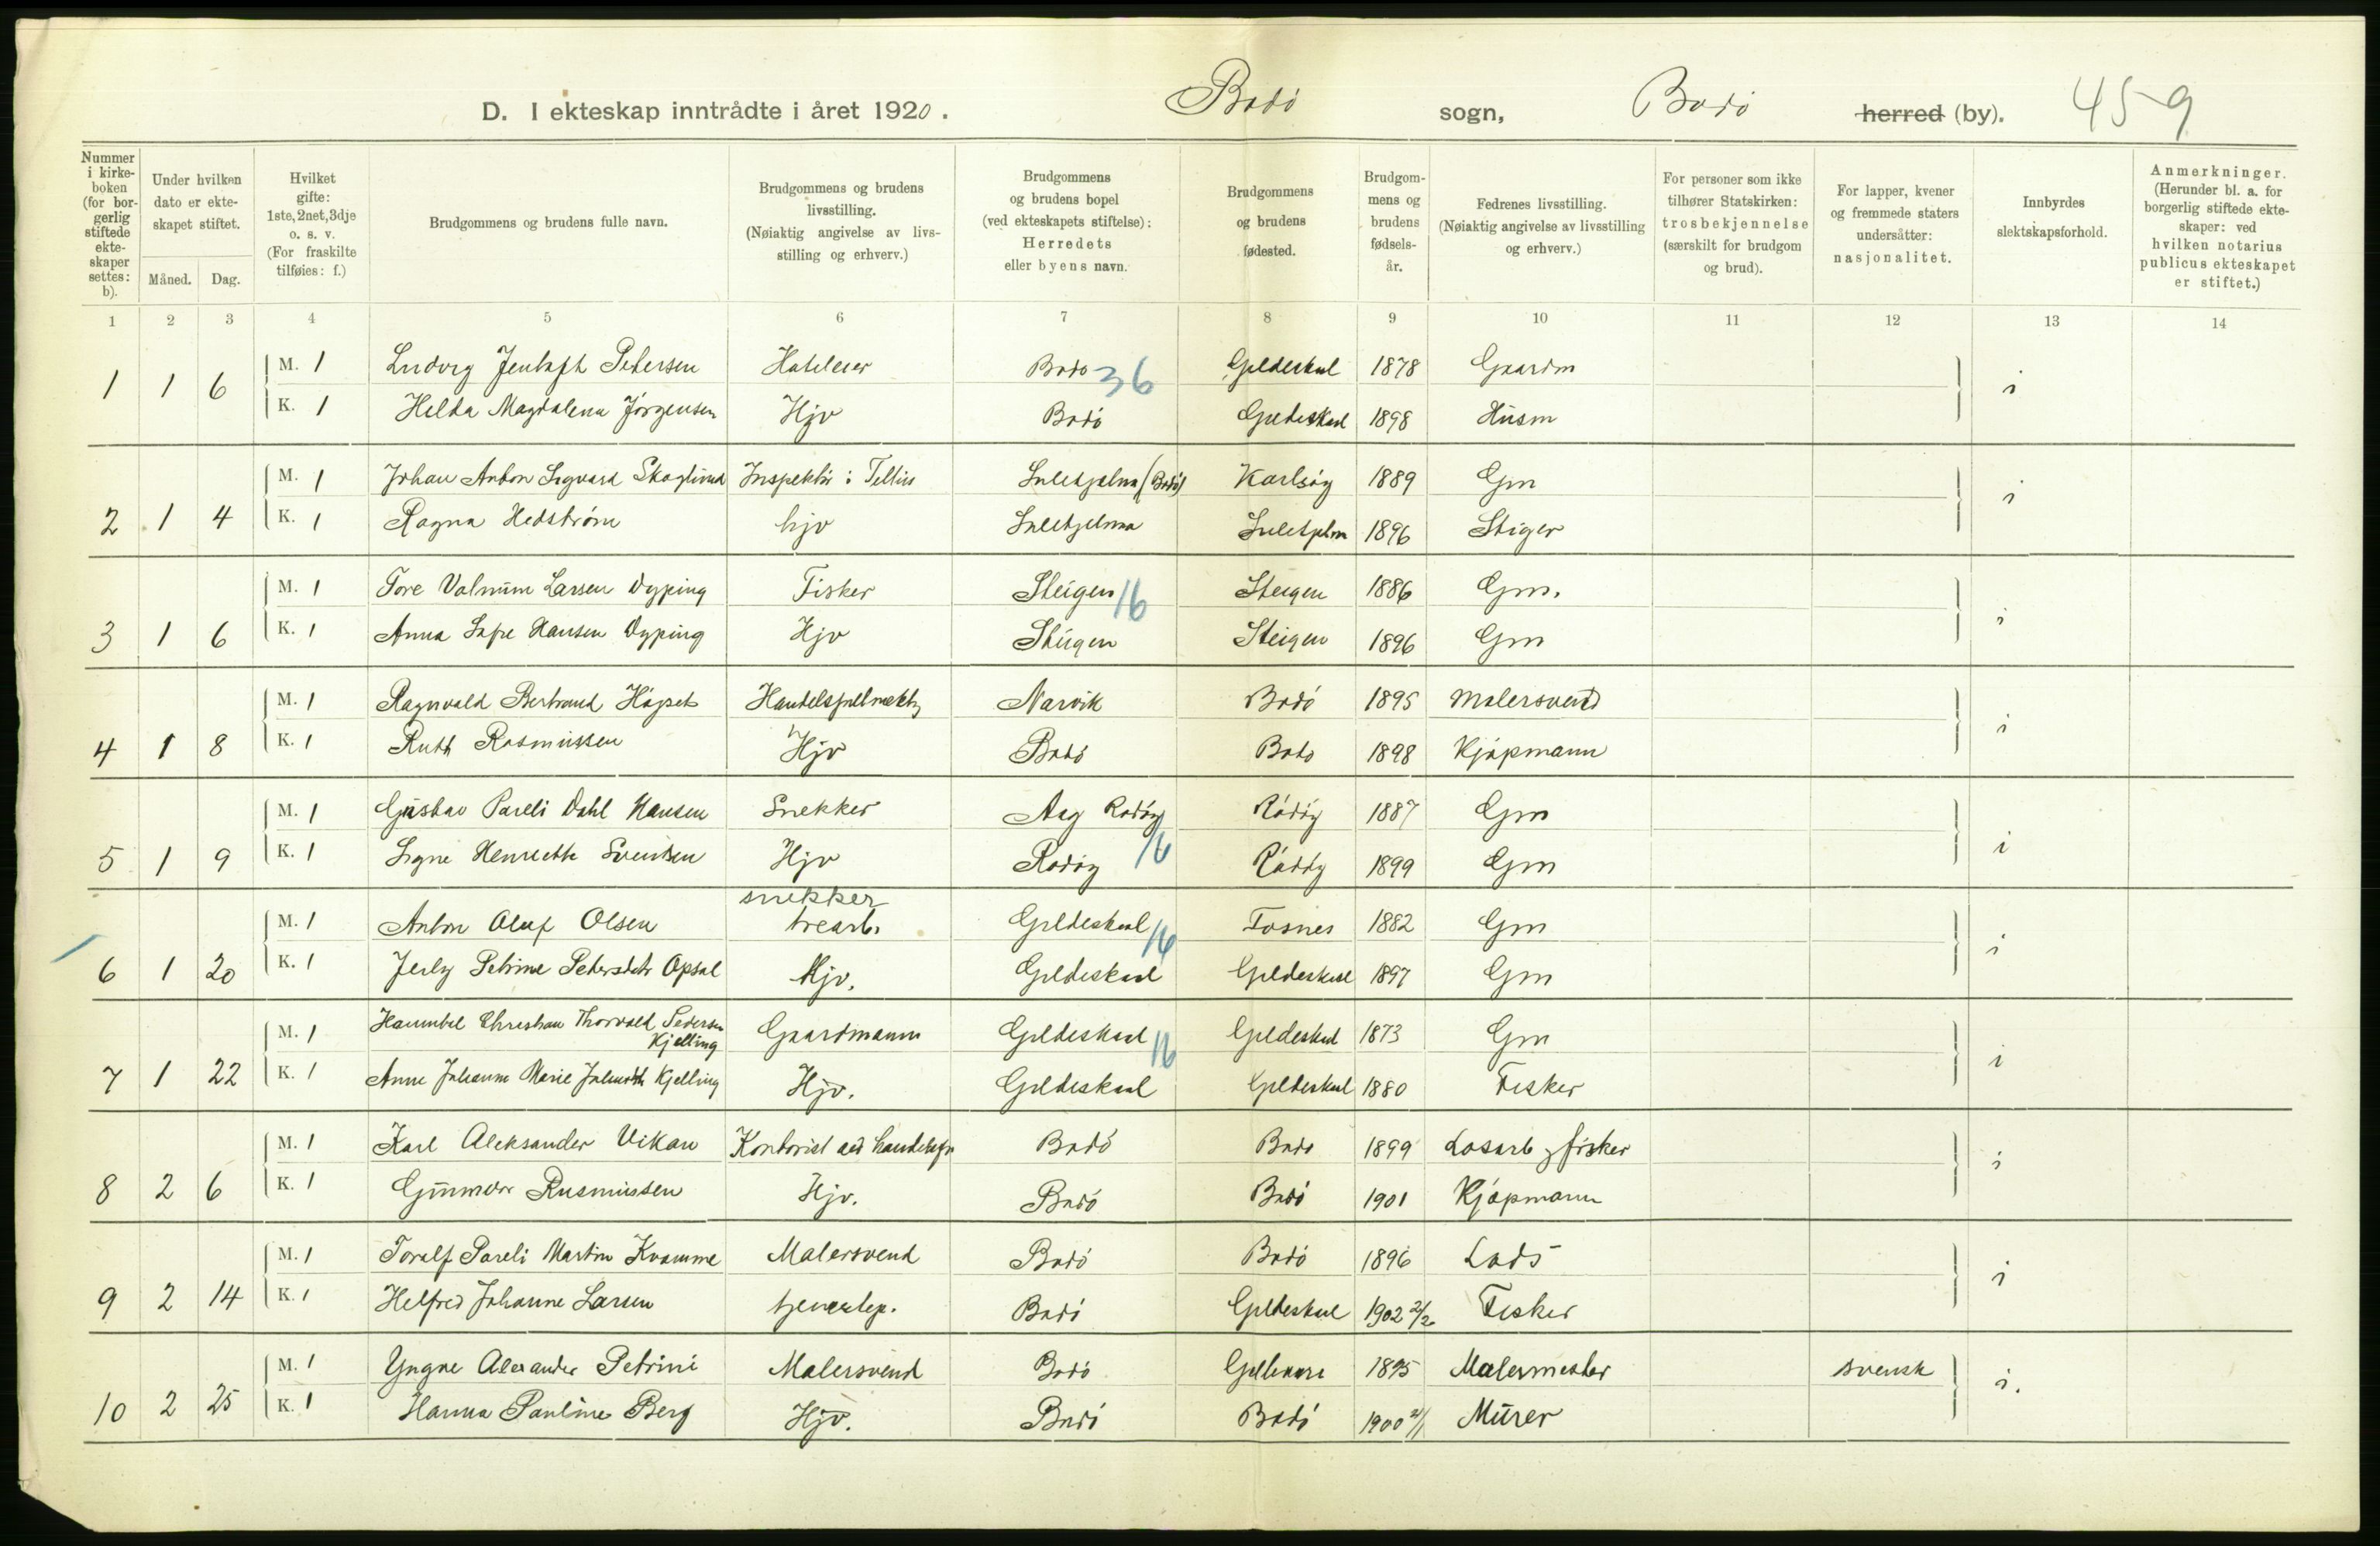 D. I ekteskap inntrådte i året 1920. Bodö sogn, Bodö herred (by). 459
Nummer i kirke-boken (for bor-gerlig stiftede ekte-skaper settes: b).
Under hvilken dato er ekte-skapet stiftet.
Måned. Dag.
Hvilket gifte: 1ste, 2net, 3dje o. s. v. (For fraskilte tilføies: f.)
Brudgommens og brudens fulle navn.
Brudgommens og brudens livsstilling. (Nøiaktig angivelse av livs-stilling og erhverv.)
Brudgommens og brudens bopel (ved ekteskapets stiftelse): Herredets eller byens navn.
Brudgommens og brudens fødested.
Brudgom-mens og brudens fødsels-år.
Fedrenes livsstilling. (Nøiaktig angivelse av livsstilling og erhverv.)
For personer som ikke tilhører Statskirken: trosbekjennelse (særskilt for brudgom og brud).
For lapper, kvener og fremmede staters undersåtter: nasjonalitet.
Innbyrdes slektskapsforhold.
Anmerkninger. (Herunder bl. a. for borgerlig stiftede ekte-skaper: ved hvilken notarius publicus ekteskapet er stiftet.)
1 2 3 4 5 6 7 8 9 10 11 12 13 14
M. 1 Ludvig Petersen Hoteleier Bodo 36 Gildeskaal 1878 Gaardm
1 1 6 K. 1 Helda Magdalena Jörgensen Hjv Bodö Gildeskaal 1898 Husm i
M. 1 Johan Anton Sigvard Skoglund Inspektör i Sulitjelma (Bodö) Karlsöy 1889 Gm
2 1 4 K. 1 Ragna Hedström hjv Sulitjelma Sulitjelm 1896 Stiger i
M. 1 Tore Larsen Dyping Fisker Steigen 16 Steigen 1886 Gm.
3 1 6 K. 1 Anna Hansen Dyping Hjv Steigen Steigen 1896 Gm i
M. 1 Ragnvald Bertrand Högset Narvik Bodö 1895 Malersvend
4 1 8 K. 1 Ruth Rasmussen Hjv Bodö Bodo 1898 Kjöpmann i
M. 1 Gustav Pareli Dahl Hansen Snekker Aag Rodöy Rödöy 1887 Gm
5 1 9 K. 1 Signe Henriette Svendsen Hjv Rodöy 16 Rödöy 1899 Gm i
snekker
M. 1 Anton Oluf Olsen trearb. Gildeskaal 16 Fosnes 1882 Gm
6 1 20 K. 1 Petrine Petersdtr Opsal Hjv. Gildeskaal Gildeskaal 1897 Gm i
M. 1 Christian Thorvald Pedersen Kjelling Gaardmann Gildeskaal 16 Gildeskaal 1873 Gm
7 1 22 K. 1 Anne Johanna Marie Kjelling Hjv. Gildeskaal Gildeskaal 1880 Fisker i
M. 1 Karl Aleksander Vikan Kontorist Bodö Bodo 1899 Losarb fisker
8 2 6 K. 1 Gunmor Rasmussen Hjv. Bodö Bodö 1901 Kjöpmann i
M. 1 Toralf Pareli Martin Kvamme Malersvend Bodö Bodö 1896 Lods
9 2 14 K. 1 Helfred Johanne Larsen Bodö Gildeskaal 1902 2/2 Fisker i
M. 1 Yngve Alexander Petrini Malersvend Bodö 1895 Malermester svensk
10 2 25 K. 1 Hanna Pauline Berg Hjv. Bodö Bodö 1900 21/1 Murer i.